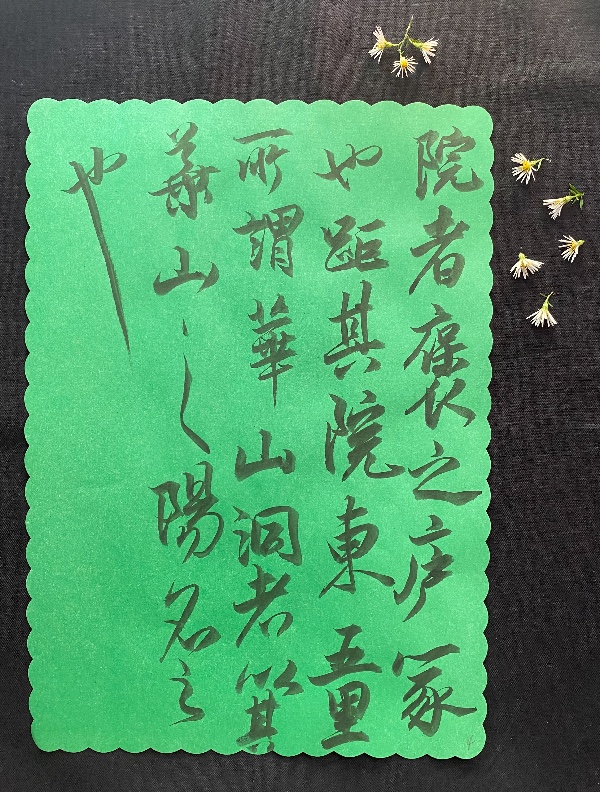 院者褒之庐冢
也距其院東五里
所謂華山洞者以其
華山之陽名之
也